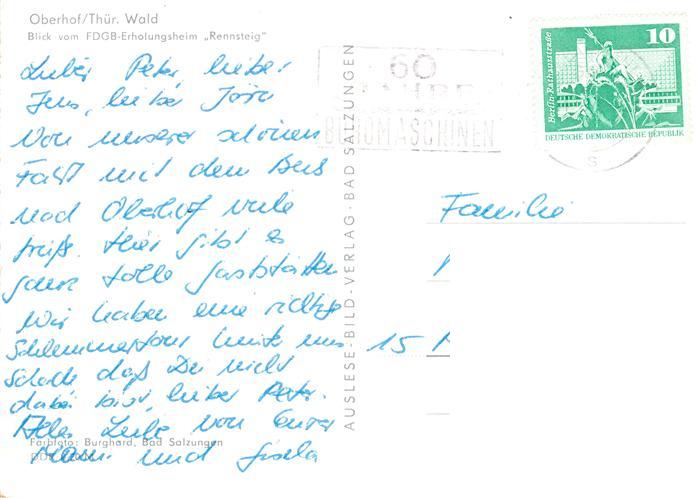 Oberhof/Thür. Wald
Blick vom FDGB-Erholungsheim „Rennsteig"
Lieber Peter, lieber
Jens, lieber Jörg
Von unserer schönen
Fahrt mit dem Bus
nach Oberhof viele
Grüße. Hier gibt es
ganz tolle Gaststätten
Wir haben eine richtige
Schlemmertour hinter uns.
Schade daß Du nicht
dabei bist, lieber Peter.
Alles Liebe von Eurer
Mami und Gisela
Farbfoto: Burghard, Bad Salzungen
AUSLESE-BILD-VERLAG · BAD SALZUNGEN
60
JAHRE
BÜROMASCHINEN
10
Berlin-Rathausstraße
DEUTSCHE DEMOKRATISCHE REPUBLIK
S
Familie
15